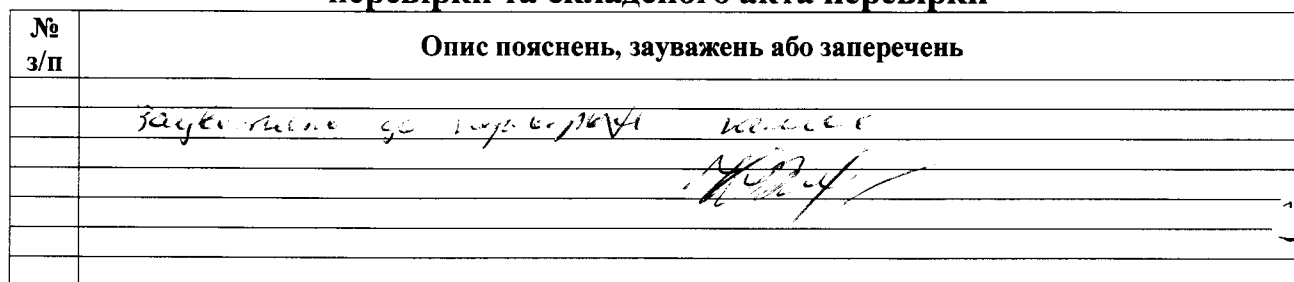 перевірки та складеного акта перевірки
№ з/п
Опис пояснень, зауважень або заперечень
зауважень до перевірки немає